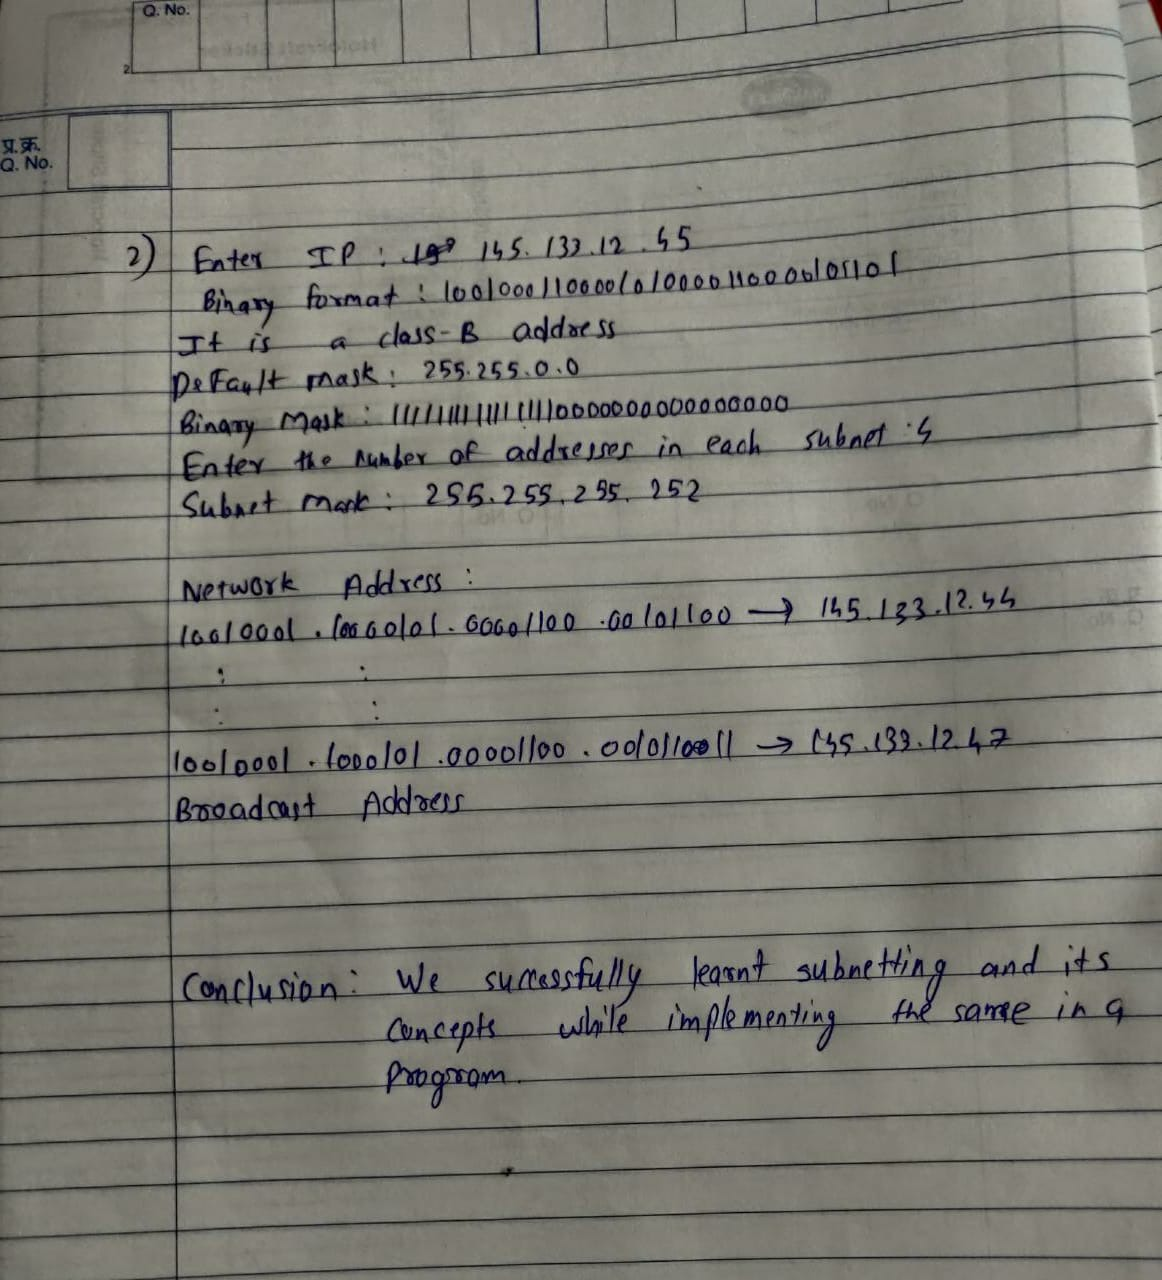 Q. No.
2
प्र.क्र.
Q. No.
2) Enter IP : 145.133.12.45
Binary format : 10010001100001010000110000101101
It is a class-B address
Default mask : 255.255.0.0
Binary Mask : 11111111111111110000000000000000
Enter the number of addresses in each subnet : 4
Subnet mask : 255.255.255.252
Network Address :
10010001.10000101.00001100.00101100 → 145.133.12.44
: :
: :
10010001.1000101.00001100.00101100 11 → 145.133.12.47
Broadcast Address
Conclusion : We successfully learnt subnetting and its
concepts while implementing the same in a
program.